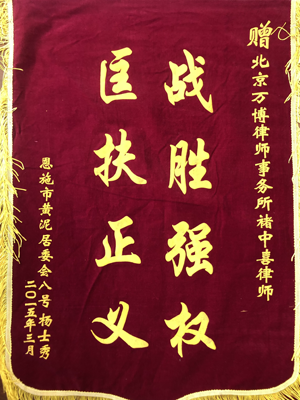 赠北京万博律师事务所褚中喜律师
战胜强权
匡扶正义
恩施市黄泥居委会八号杨士秀
二〇一五年三月